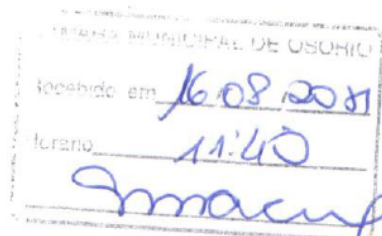 CÂMARA MUNICIPAL DE OSÓRIO
Recebido em 16/08/2011
Horário 11:40